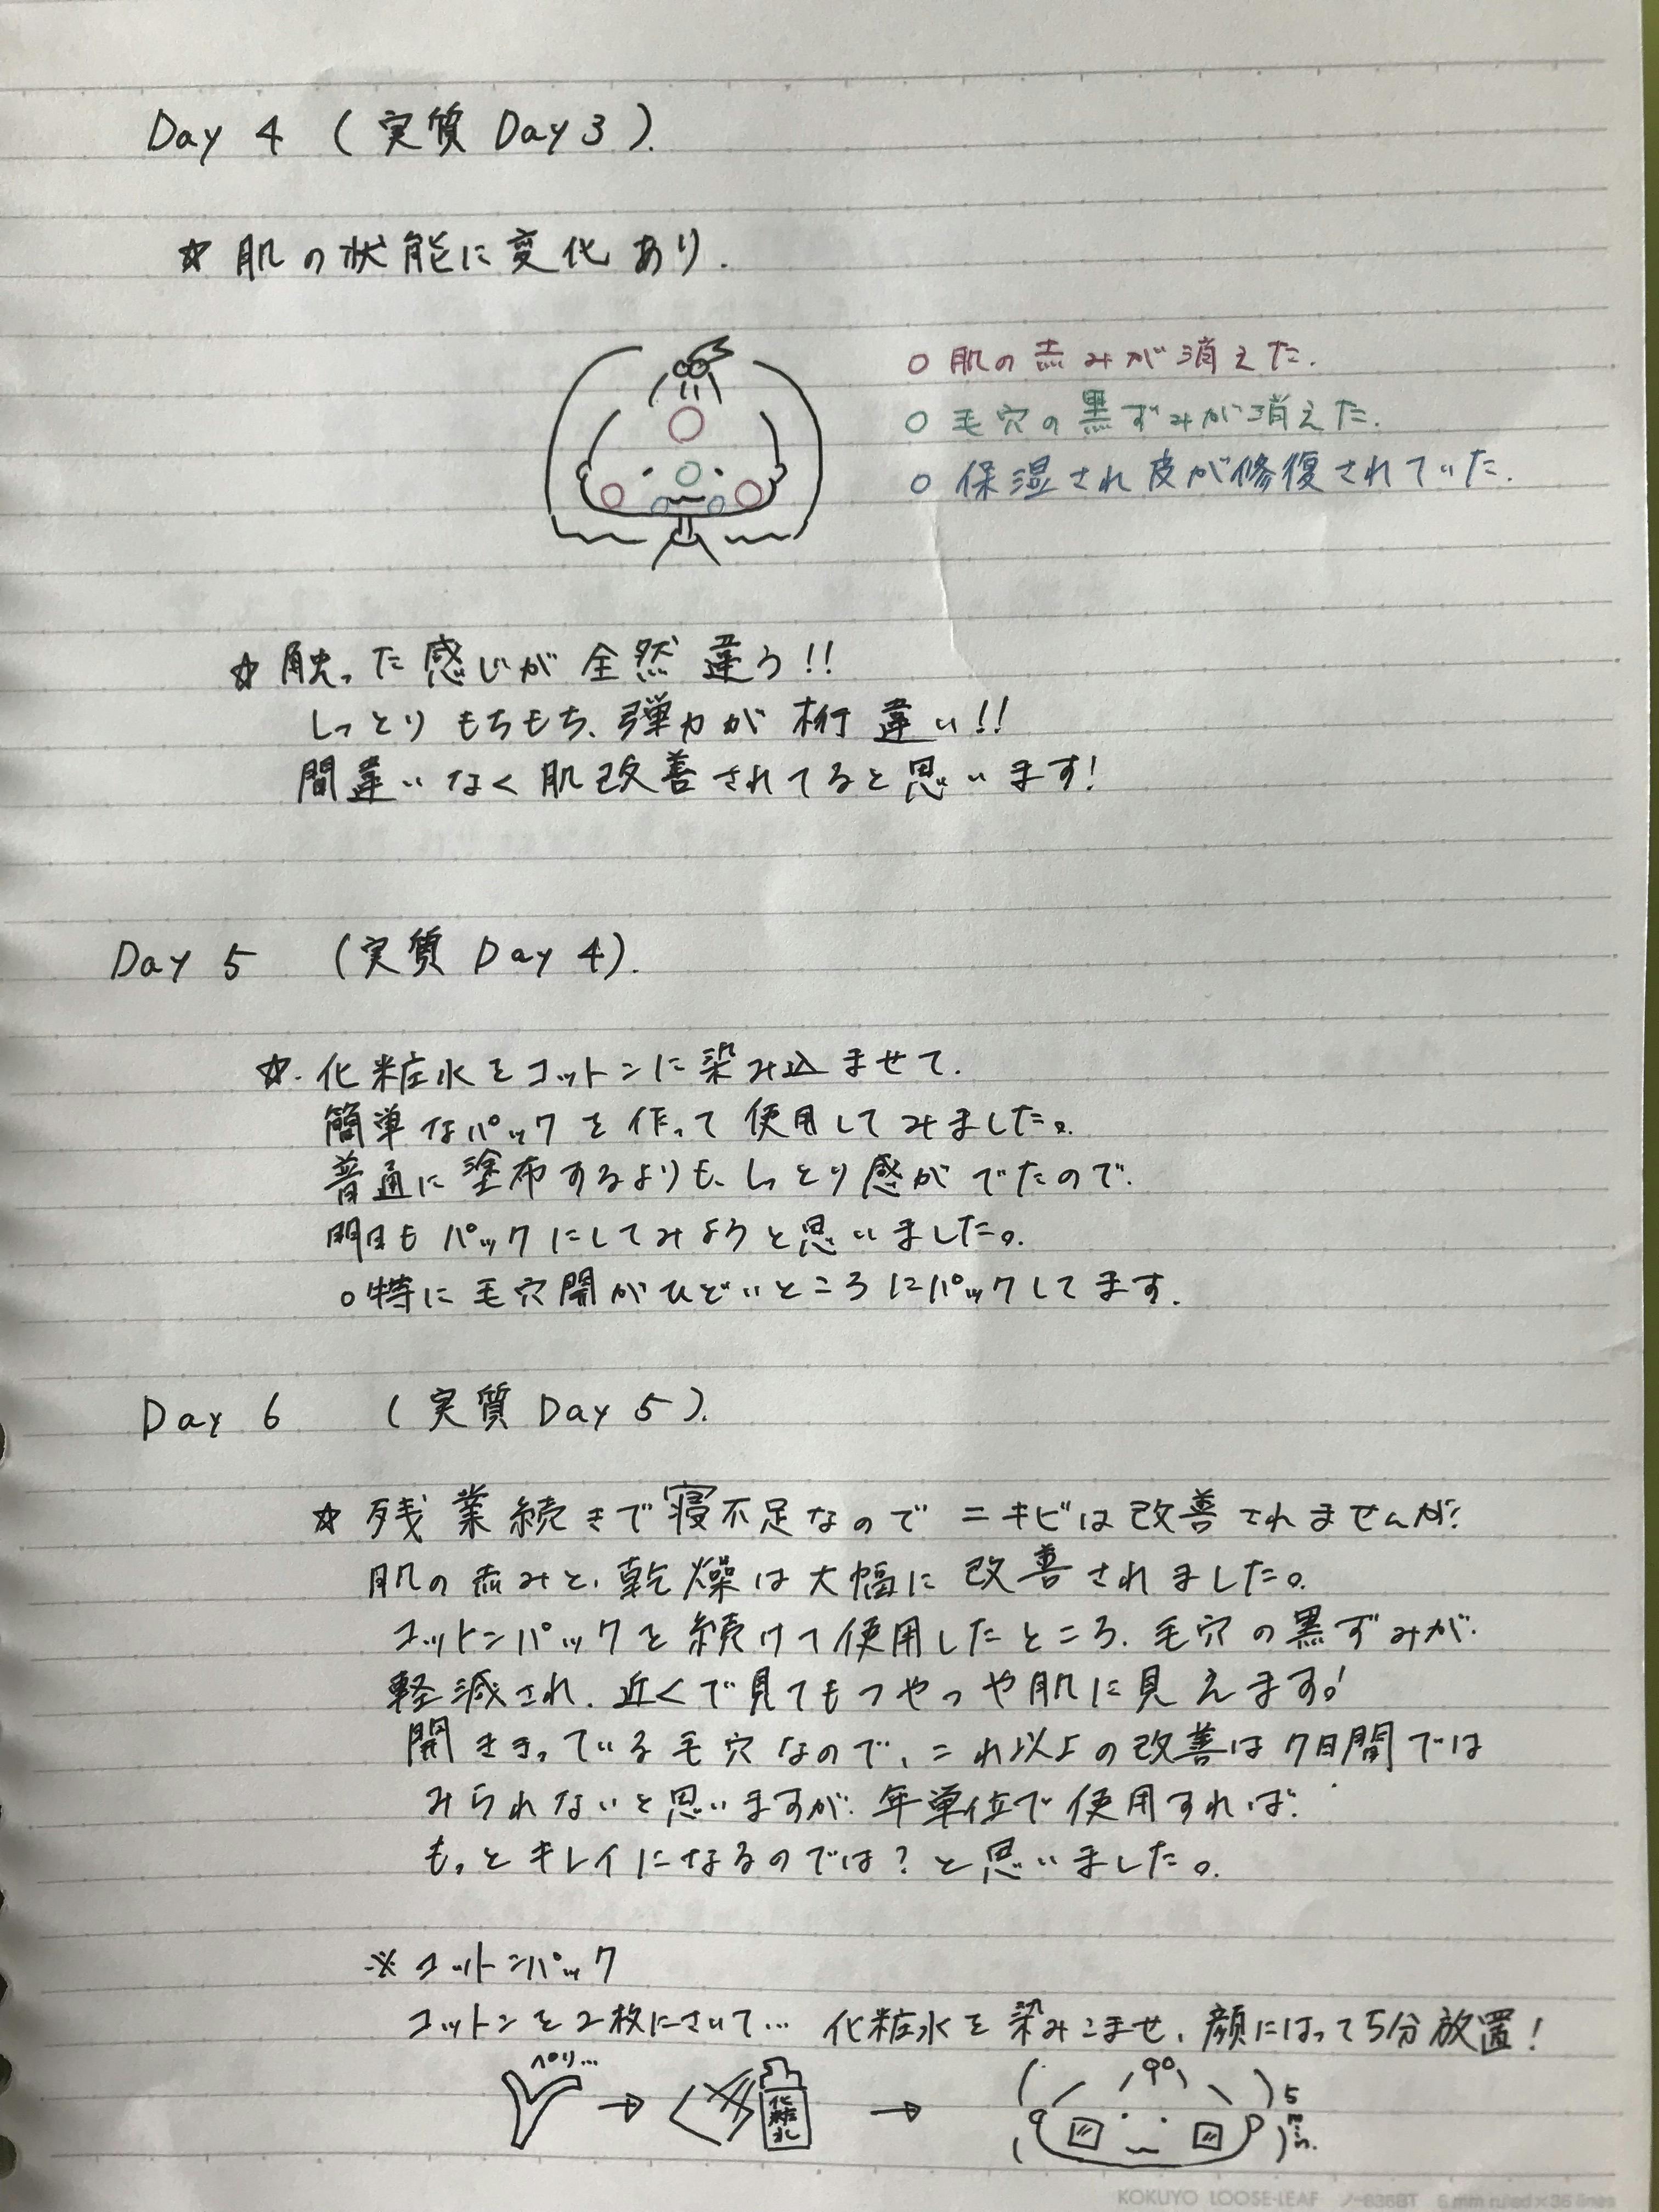 Day 4 (実質 Day 3).
☆ 肌の状態に変化あり.
○ 肌の赤みが消えた.
○ 毛穴の黒ずみが消えた.
○ 保湿され皮が修復されていた.
☆ 触った感じが全然違う!!
しっとりもちもち、弾力が桁違い!!
間違いなく肌改善されてると思います!
Day 5 (実質 Day 4).
☆. 化粧水をコットンに染み込ませて.
簡単なパックを作って使用してみました。
普通に塗布するよりも、しっとり感がでたので.
明日もパックにしてみようと思いました。
○特に毛穴開がひどいところにパックしてます.
Day 6 (実質 Day 5).
☆ 残業続きで寝不足なのでニキビは改善されませんが.
肌の赤みと、乾燥は大幅に改善されました。
コットンパックを続けて使用したところ、毛穴の黒ずみが.
軽減され、近くで見てもつやつや肌に見えます!
開ききっている毛穴なので、これ以上の改善は7日間では
みられないと思いますが、年単位で使用すれば.
もっとキレイになるのでは?と思いました。
※コットンパック
コットンを2枚にさいて... 化粧水を染みこませ、顔にはって5分放置!
ペリ...
→
化粧水
→
5min.
KOKUYO LOOSE-LEAF ノ-836BT 6 mm ruled×36 lines